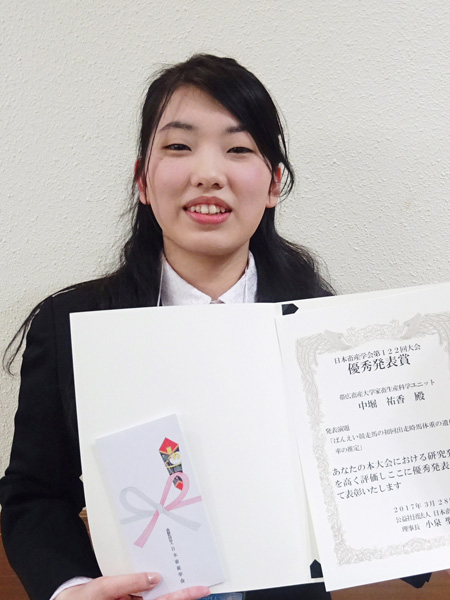 日本畜産学会第122回大会
優秀発表賞
帯広畜産大学家畜生産科学ユニット
中堀 祐香 殿
発表演題
「ばんえい競走馬の初回出走時馬体重の遺
率の推定」
あなたの本大会における研究発
を高く評価しここに優秀発表
て表彰いたします
2017年3月28
公益社団法人 日本畜
理事長 小泉 聖